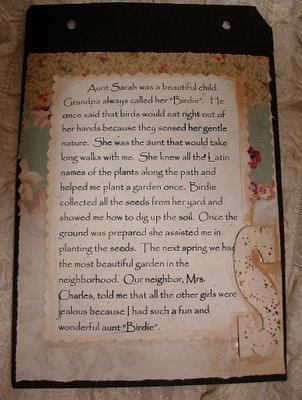 Aunt Sarah was a beautiful child.
Grandpa always called her "Birdie". He
once said that birds would eat right out of
her hands because they sensed her gentle
nature. She was the aunt that would take
long walks with me. She knew all the Latin
names of the plants along the path and
helped me plant a garden once. Birdie
collected all the seeds from her yard and
showed me how to dig up the soil. Once the
ground was prepared she assisted me in
planting the seeds. The next spring we had
the most beautiful garden in the
neighborhood. Our neighbor, Mrs.
Charles, told me that all the other girls were
jealous because I had such a fun and
wonderful aunt "Birdie".
S